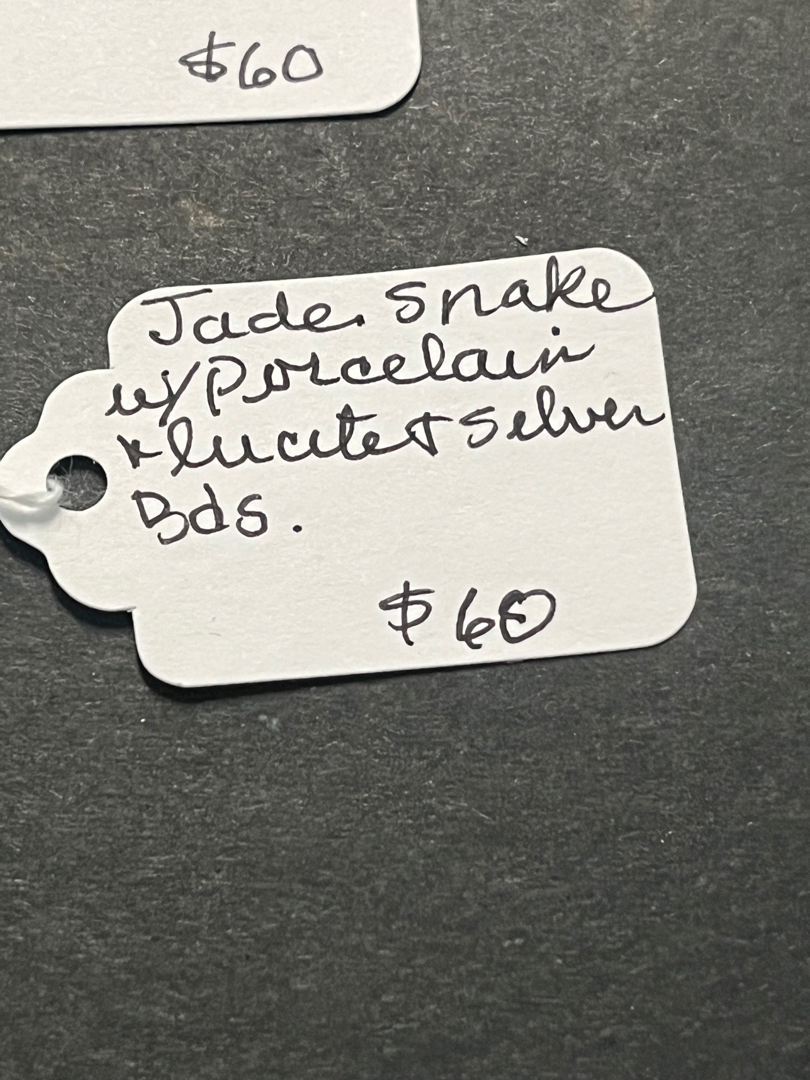 $60
Jade snake
w/porcelain
+ lucite + silver
Bds.
$60